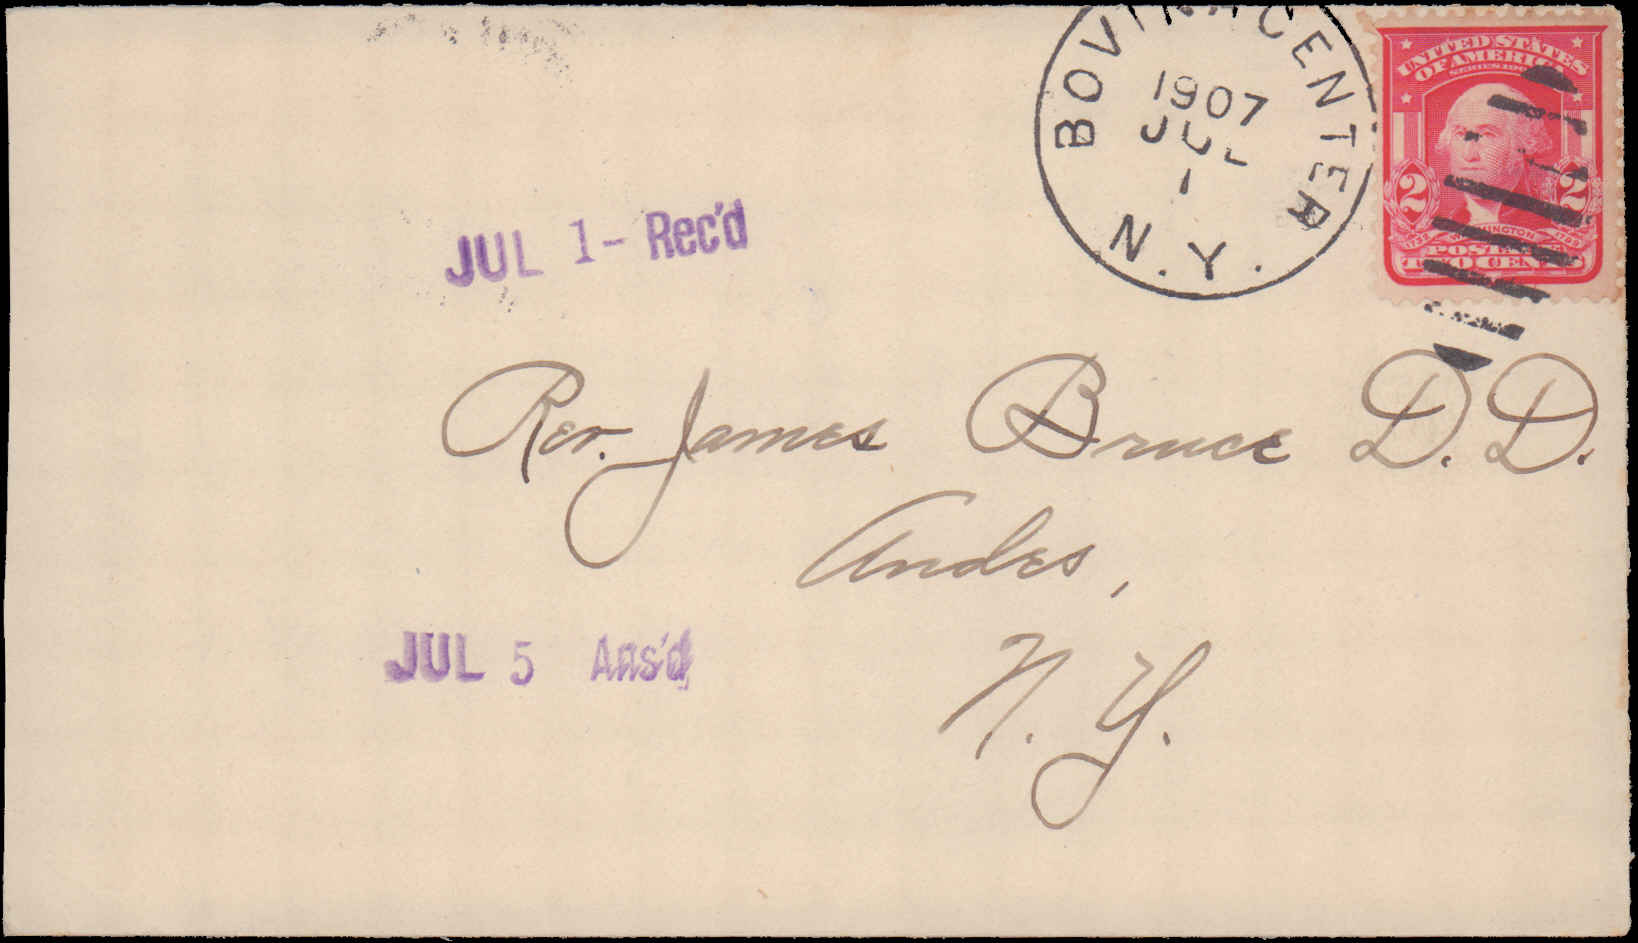 BOVINA CENTER
1907
JUL
1
N.Y.
UNITED STATES
OF AMERICA
2 2
WASHINGTON
POSTAGE
TWO CENTS
JUL 1 - Rec'd
Rev. James Bruce D. D.
Andes,
N. Y.
JUL 5 Ans'd